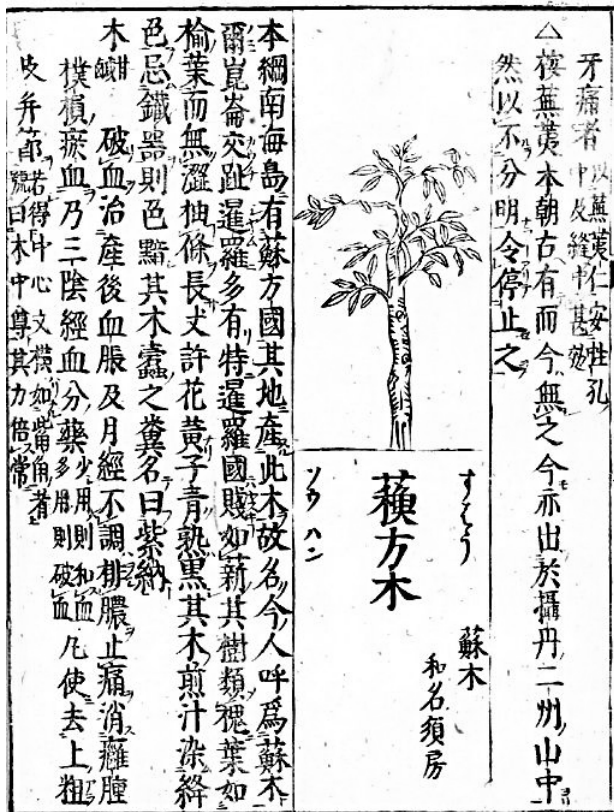 牙痛者以蕪荑仁安蛀孔
中及縫中甚妙
△桉蕪荑本朝古有而今無之今亦出於攝丹二州山中
然以不分明令停止之
すはう
蘓方木
ソウ ハン
蘇木
和名須房
本綱南海島有蘇方國其地產此木故名今人呼爲蘇木
爾崑崙交趾暹羅多有特暹羅國賤如薪其樹類槐葉如
榆葉而無澀抽條長丈許花黃子青熟黑其木煎汁染絳
色忌鐵器則色黯其木蠹之糞名曰紫納
木甘鹹 破血治產後血脹及月經不調排膿止痛消癰腫
撲損瘀血乃三陰經血分藥少用則和血
多用則破血凡使去上粗
皮并節若得中心文橫如紫角者
號曰木中尊其力倍常